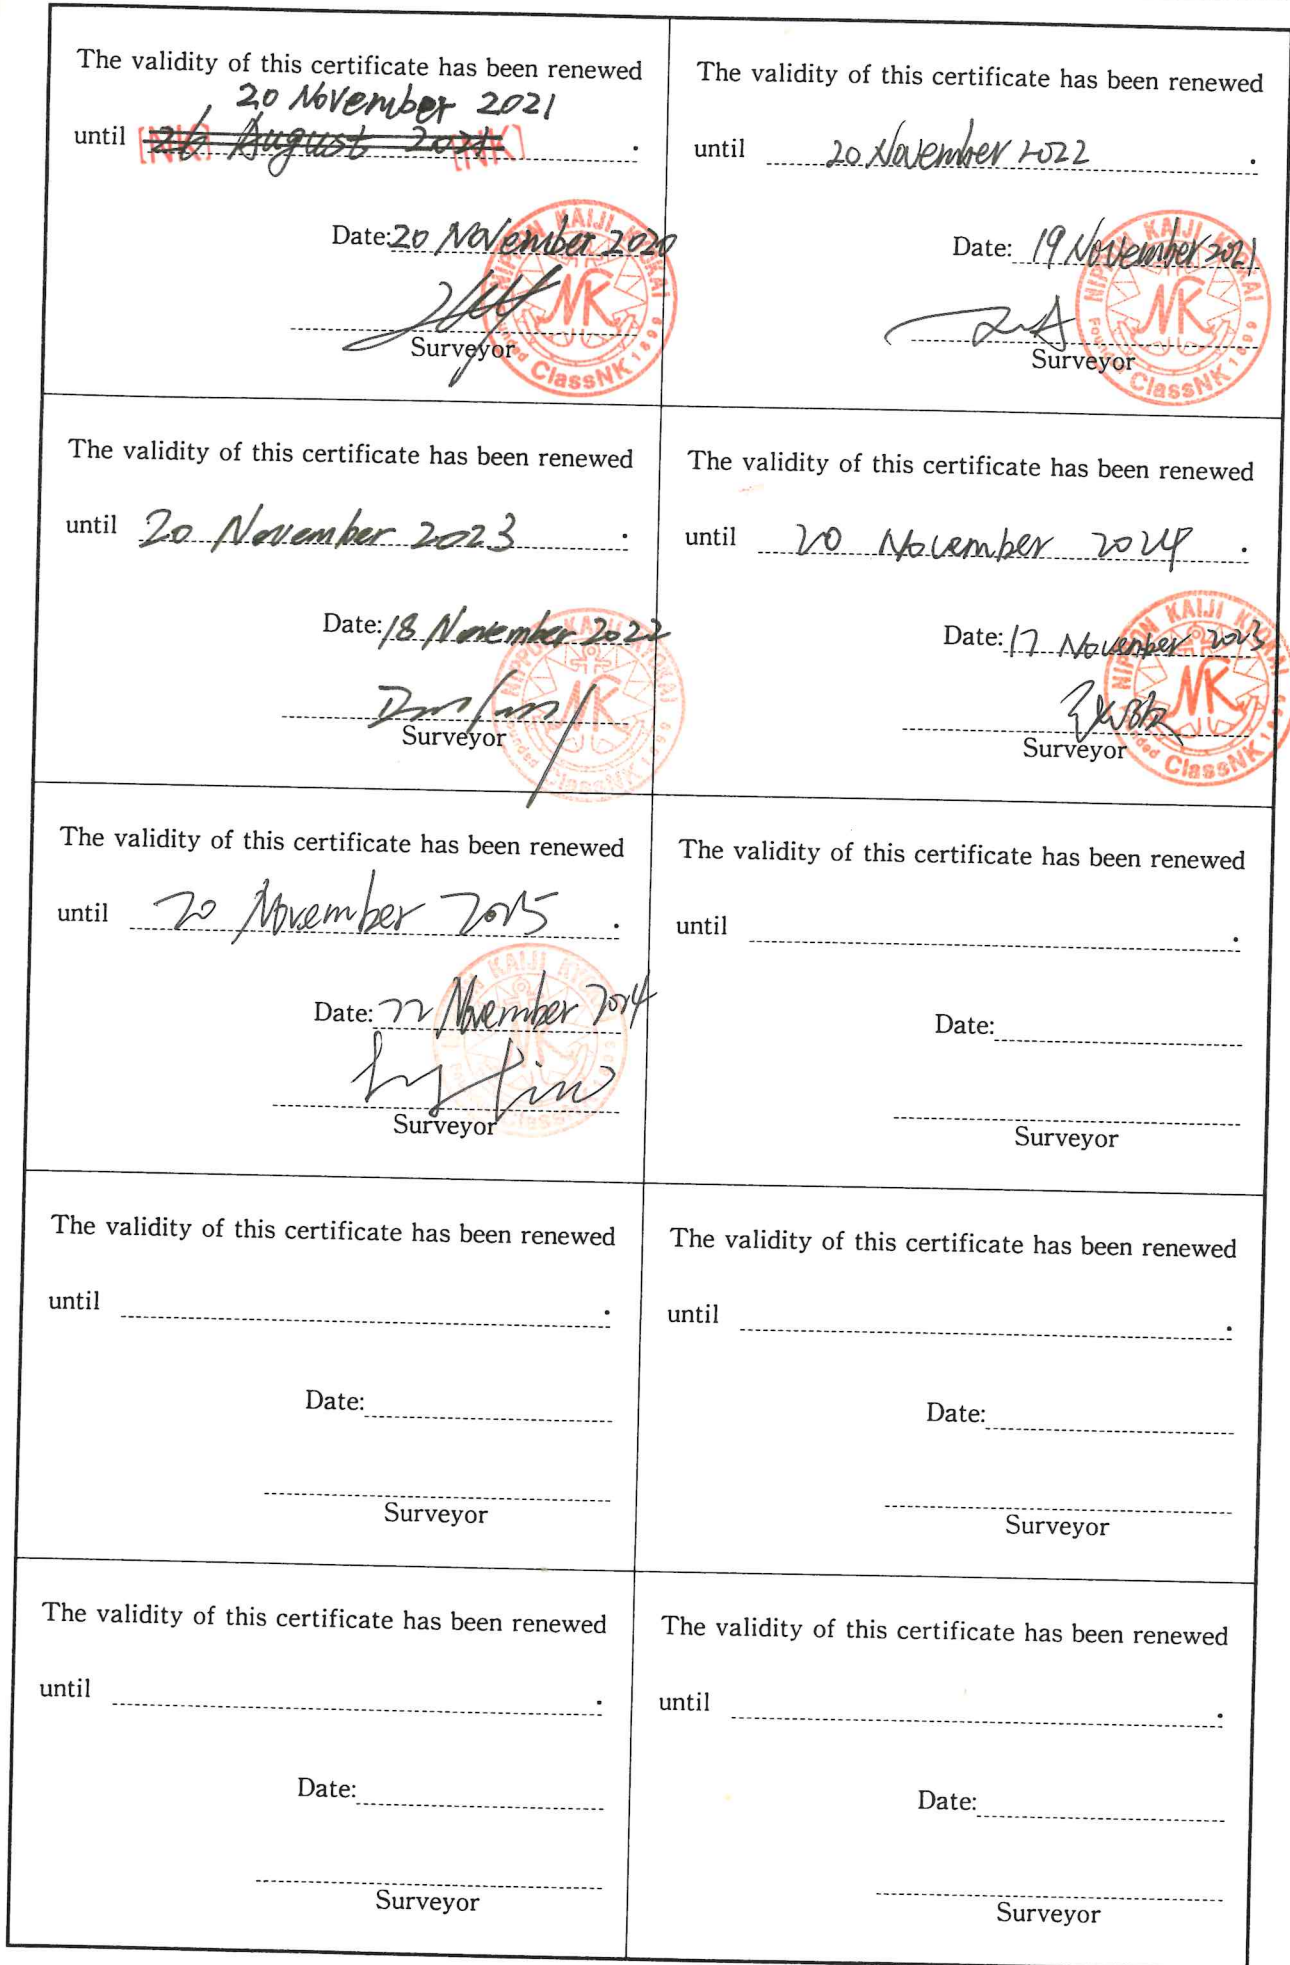 The validity of this certificate has been renewed
20 November 2021
until 26 August 2021 .
[NK] [NK]
Date: 20 November 2020
Surveyor
NIPPON KAIJI KYOKAI
NK
Founded ClassNK 1899
The validity of this certificate has been renewed
until 20 November 2022 .
Date: 19 November 2021
Surveyor
NIPPON KAIJI KYOKAI
NK
Founded ClassNK 1899
The validity of this certificate has been renewed
until 20 November 2023 .
Date: 18 November 2022
Surveyor
NIPPON KAIJI KYOKAI
NK
Founded ClassNK 1899
The validity of this certificate has been renewed
until 20 November 2024 .
Date: 17 November 2023
Surveyor
NIPPON KAIJI KYOKAI
NK
Founded ClassNK 1899
The validity of this certificate has been renewed
until 20 November 2025 .
Date: 22 November 2024
Surveyor
NIPPON KAIJI KYOKAI
NK
ClassNK
The validity of this certificate has been renewed
until .
Date:
Surveyor
The validity of this certificate has been renewed
until .
Date:
Surveyor
The validity of this certificate has been renewed
until .
Date:
Surveyor
The validity of this certificate has been renewed
until .
Date:
Surveyor
The validity of this certificate has been renewed
until .
Date:
Surveyor